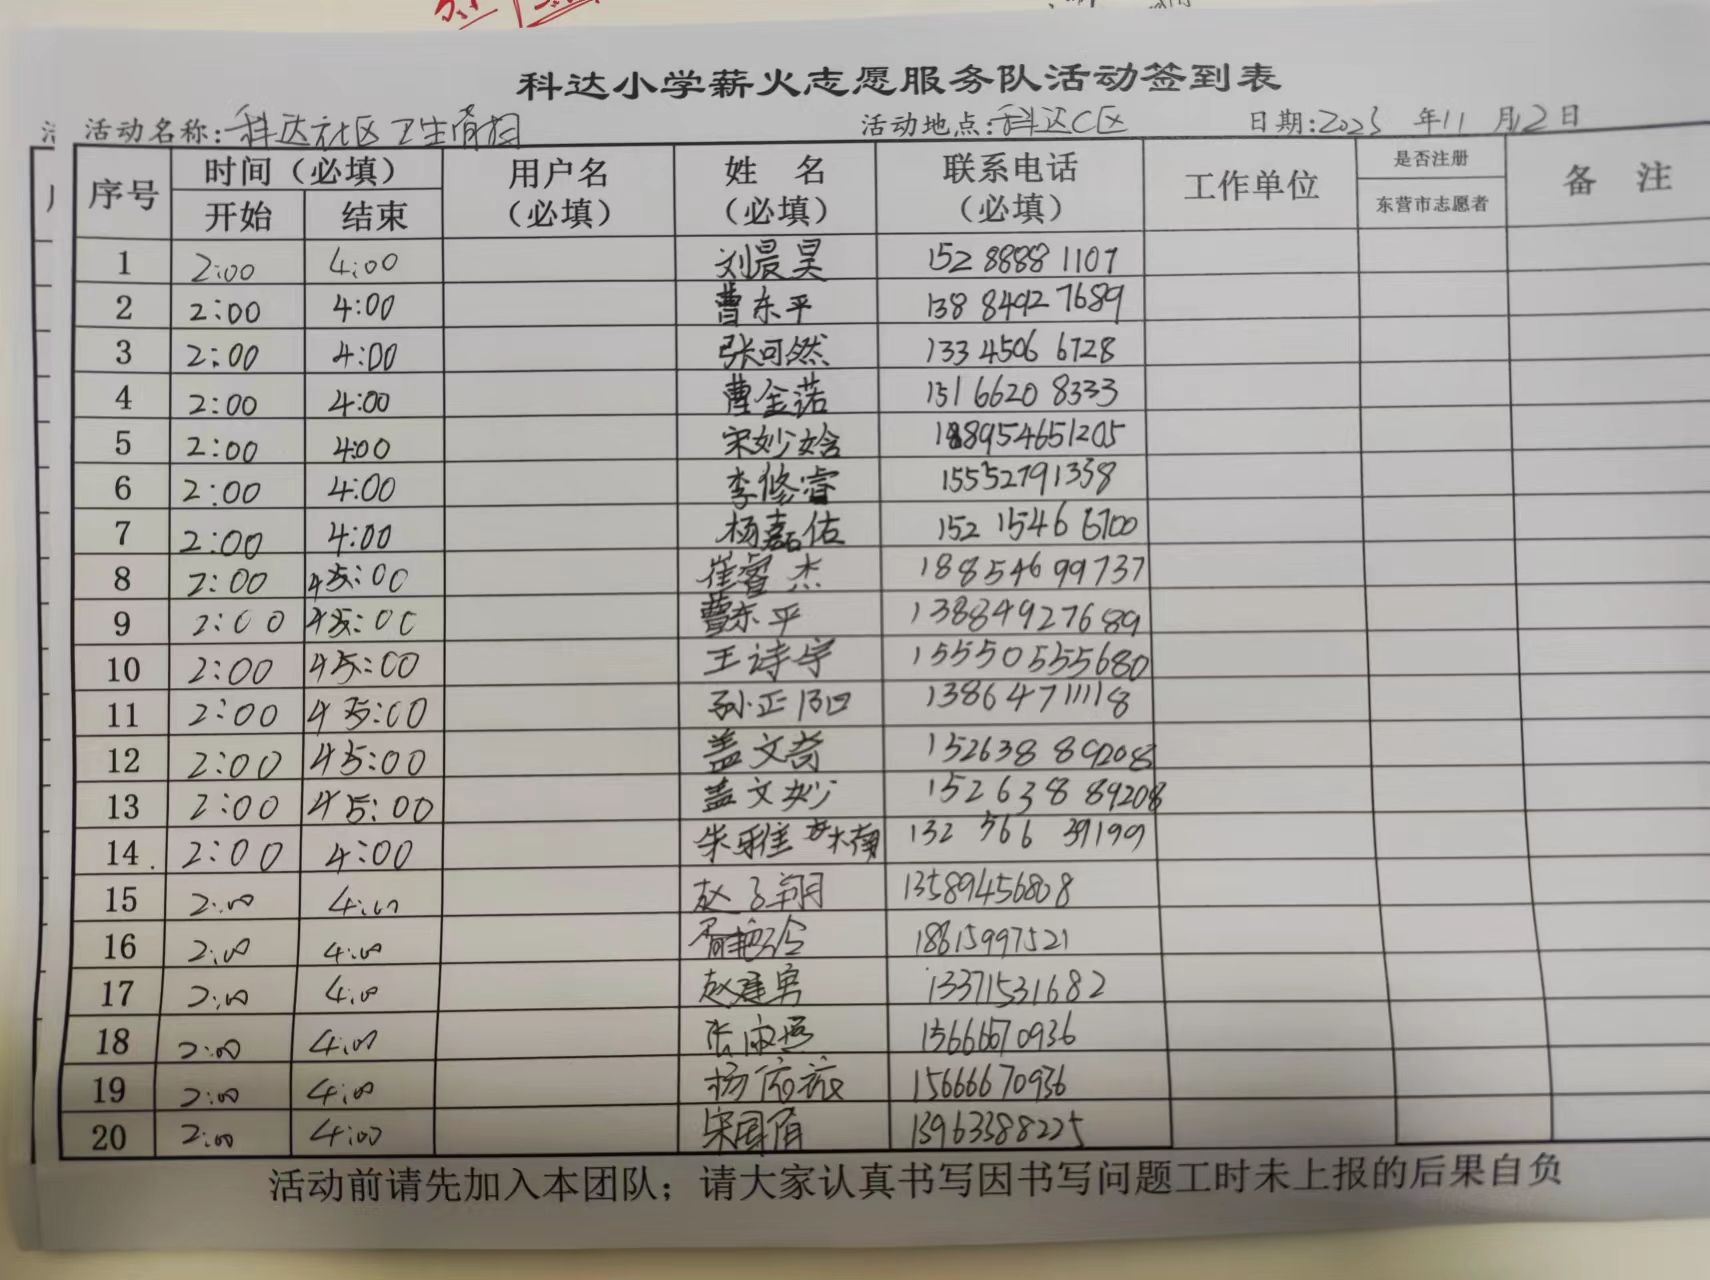 科达小学薪火志愿服务队活动签到表
活动名称:科达社区卫生清扫 活动地点:科达C区 日期:2023 年11 月12日
序号 时间（必填） 用户名（必填） 姓 名（必填） 联系电话（必填） 工作单位 是否注册 东营市志愿者 备 注
开始 结束
1 2:00 4:00 刘晨昊 152 8888 1107
2 2:00 4:00 曹东平 138 8492 7689
3 2:00 4:00 张可然 133 4506 6728
4 2:00 4:00 曹金诺 151 6620 8333
5 2:00 4:00 宋妙晗 188954651205
6 2:00 4:00 李修睿 15552791338
7 2:00 4:00 杨嘉佑 152 1546 6700
8 2:00 5:00 崔睿杰 18854699737
9 2:00 5:00 曹东平 13884927689
10 2:00 5:00 王诗宇 15550555680
11 2:00 5:00 孙正阳 13864711118
12 2:00 5:00 盖文奇 152638 89208
13 2:00 5:00 盖文妙 152638 89208
14 2:00 4:00 朱雅楠 132 566 39199
15 2:00 4:00 赵子翔 13589456808
16 2:00 4:00 18615997521
17 2:00 4:00 赵建勇 13371531682
18 2:00 4:00 15666670936
19 2:00 4:00 杨依诺 15666670936
20 2:00 4:00 13963388225
活动前请先加入本团队；请大家认真书写因书写问题工时未上报的后果自负